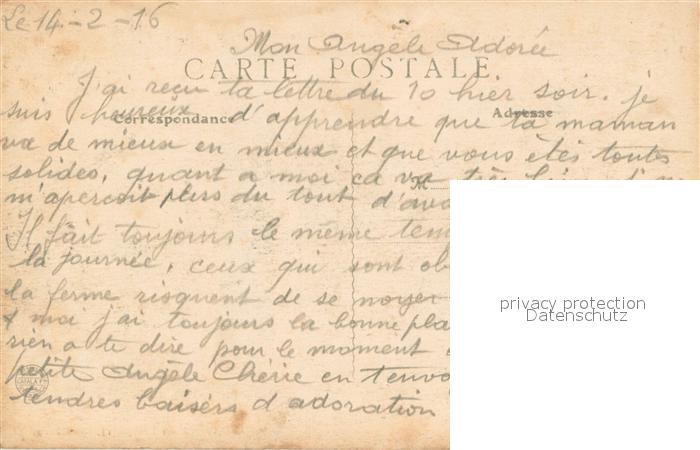 Le 14-2-16
Mon Angèle Adorée
CARTE POSTALE
J'ai reçu ta lettre du 10 hier soir. je
suis heureux d'apprendre que ta maman
Correspondance
Adresse
va de mieux en mieux et que vous êtes toutes
solides, quant a moi ca va très
M
m'apercoit plus du tout d'avo
Il fait toujours le même tem
la journée, ceux qui sont ob
la ferme risquent de se noyer
moi j'ai toujours la bonne pla
rien a te dire pour le moment
petite Angèle Chérie en t'envo
tendres baisers d adoration
privacy protection
Datenschutz